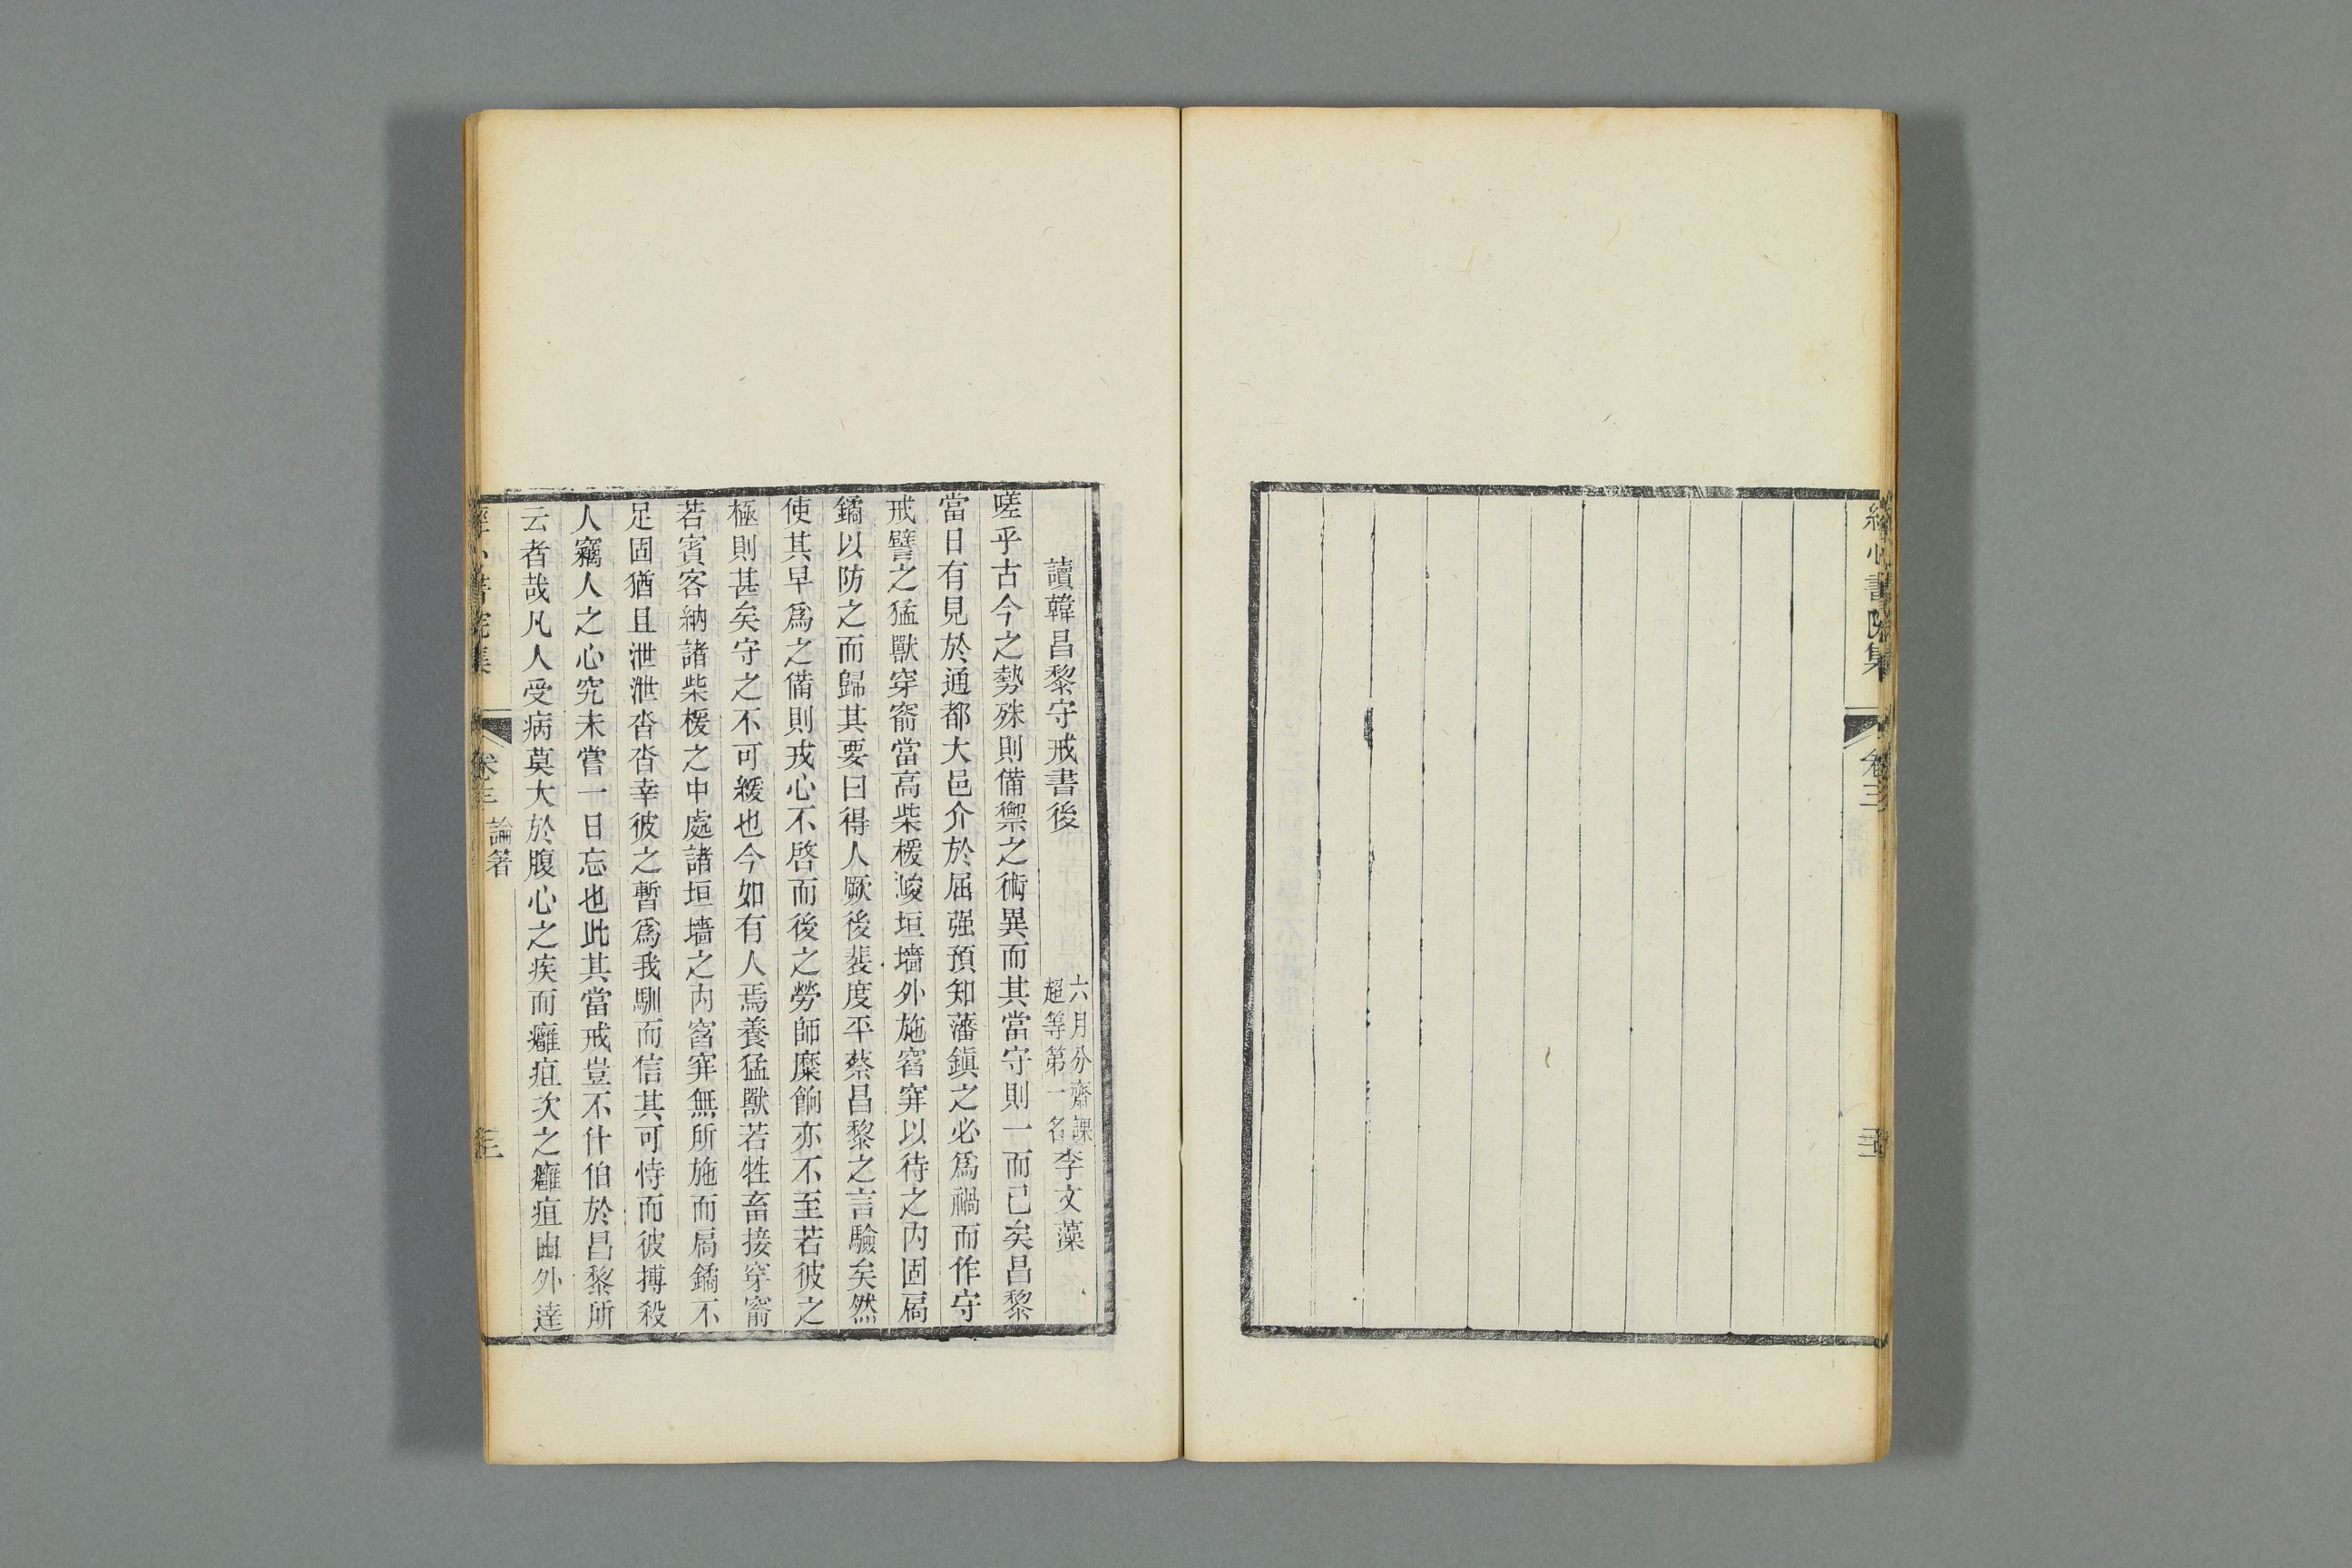 經心書院集
卷三
讀韓昌黎守戒書後
六月分齋課
超等第一名
李文藻
嗟乎古今之勢殊則備禦之術異而其當守則一而已矣昌黎
當日有見於通都大邑介於屈强預知藩鎭之必爲禍而作守
戒譬之猛獸穿窬當高柴楥浚垣墻外施窞穽以待之內固扃
鐍以防之而歸其要曰得人厥後裴度平蔡昌黎之言驗矣然
使其早爲之備則戎心不啓而後之勞師糜餉亦不至若彼之
極則甚矣守之不可緩也今如有人焉養猛獸若牲畜接穿窬
若賓客納諸柴楥之中處諸垣墻之內窞穽無所施而扃鐍不
足固猶且泄泄沓沓幸彼之暫爲我馴而信其可恃而彼搏殺
人竊人之心究未嘗一日忘也此其當戒豈不什伯於昌黎所
云者哉凡人受病莫大於腹心之疾而癰疽次之癰疽由外達
經心書院集
卷三
論著